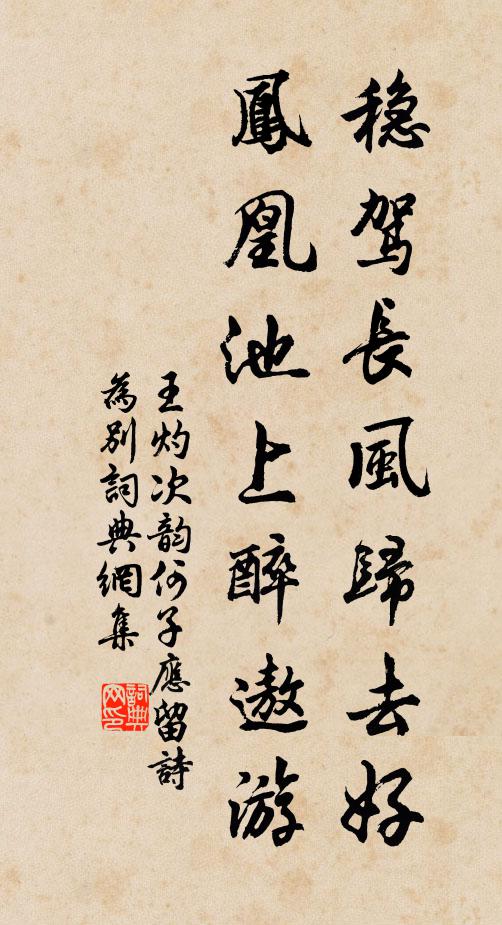 穏駕長風歸去好
鳳凰池上醉遨游
王灼次韵何子應留詩
為別詞典網集
詞典
网印